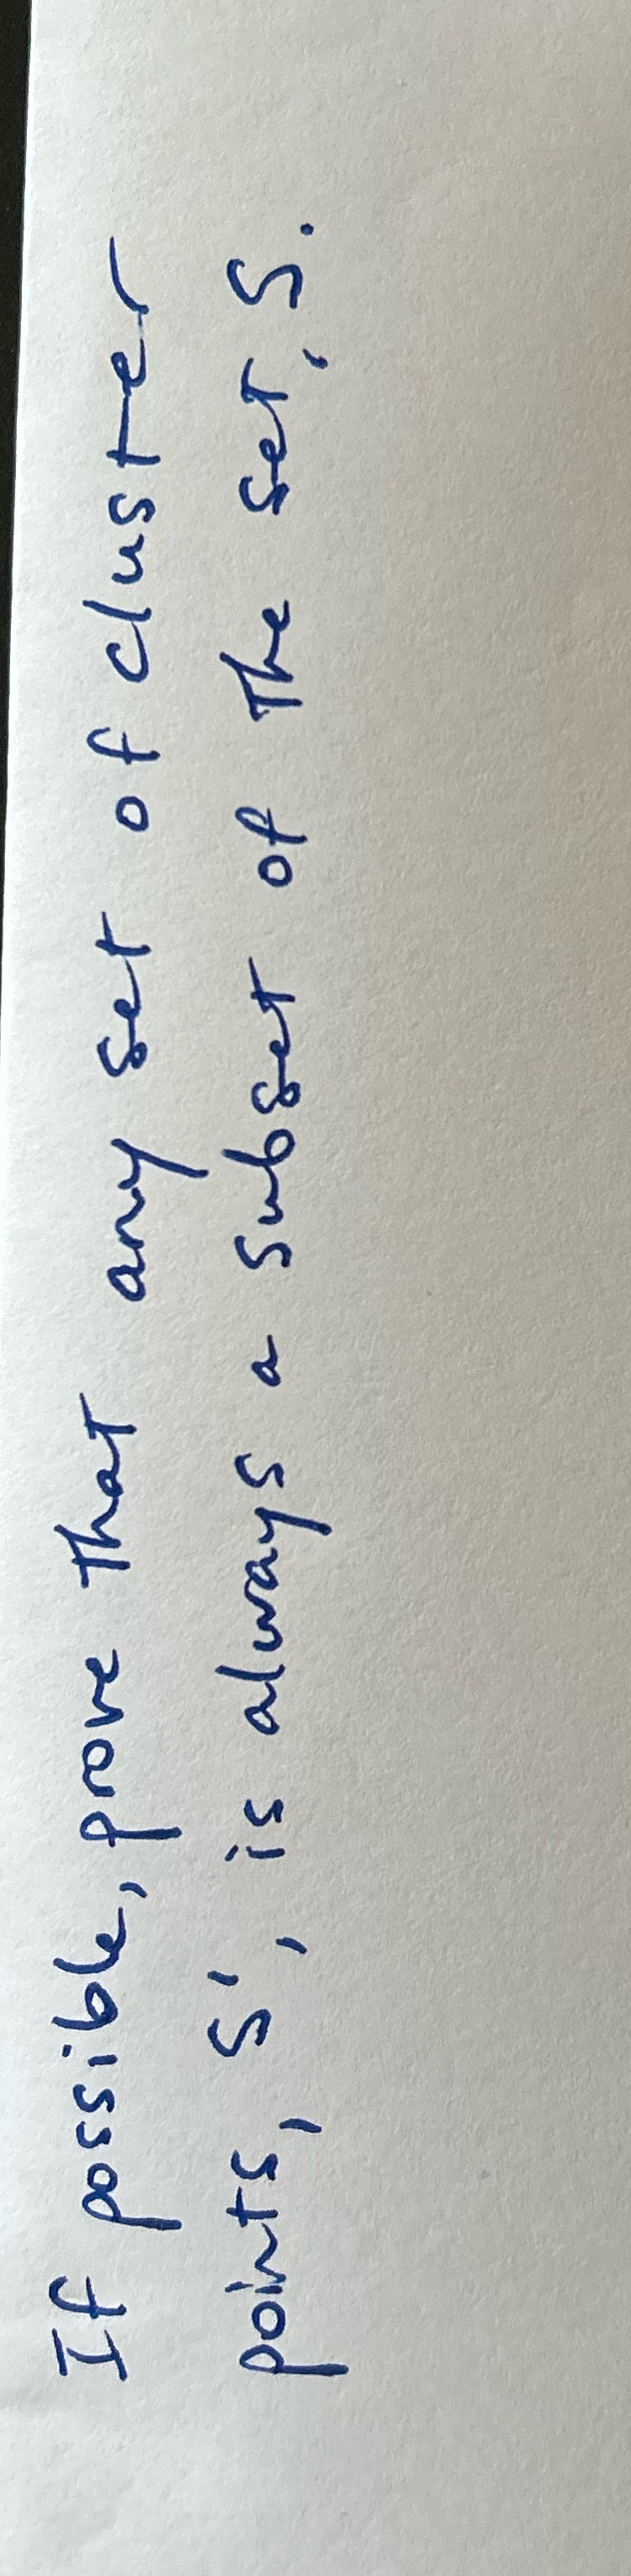 If possible, prove that any set of cluster
points, S', is always a subset of the set, S.